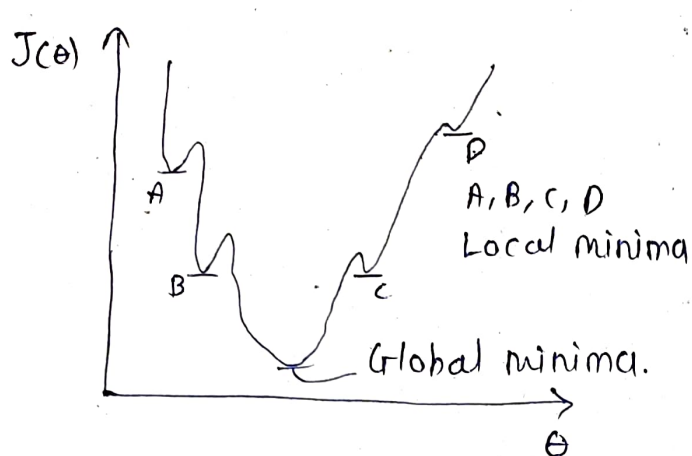 J(θ)
A
D
A, B, C, D
Local minima
B
C
Global minima.
θ